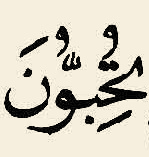 تُحِبُّونَ